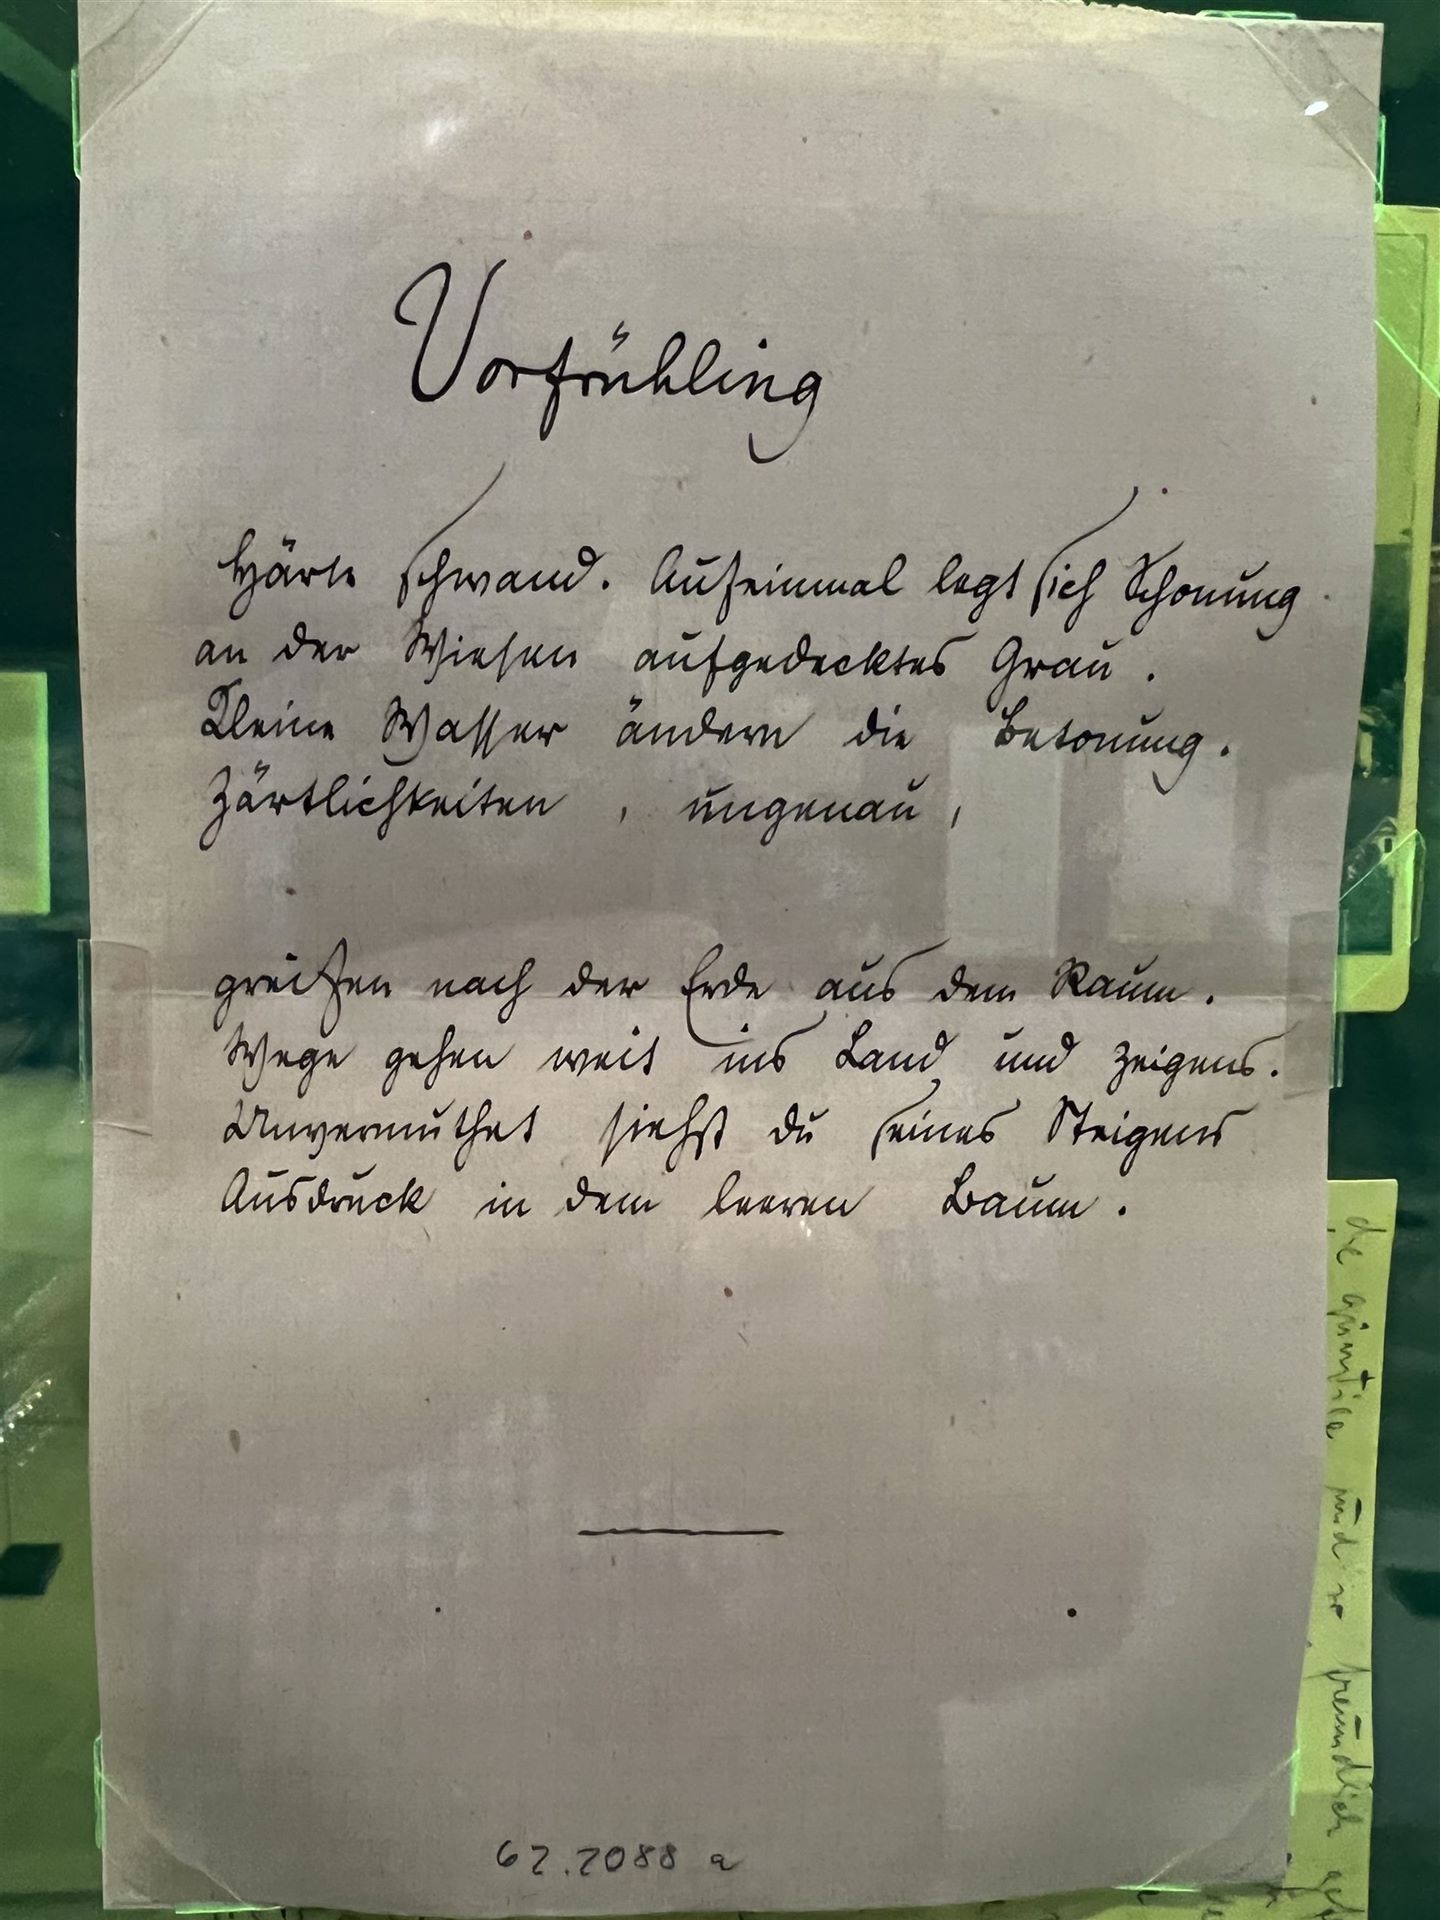 Vorfrühling
Härte schwand. Aufeinmal legt sich Schonung
an der Wiesen aufgedecktes Grau.
Kleine Wasser ändern die Betonung.
Zärtlichkeiten, ungenau,
greifen nach der Erde aus dem Raum.
Wege gehen weit ins Land und zeigens.
Unvermuthet siehst du seines Steigens
Ausdruck in dem leeren Baum.
62.2088 a
de
und
freundlich